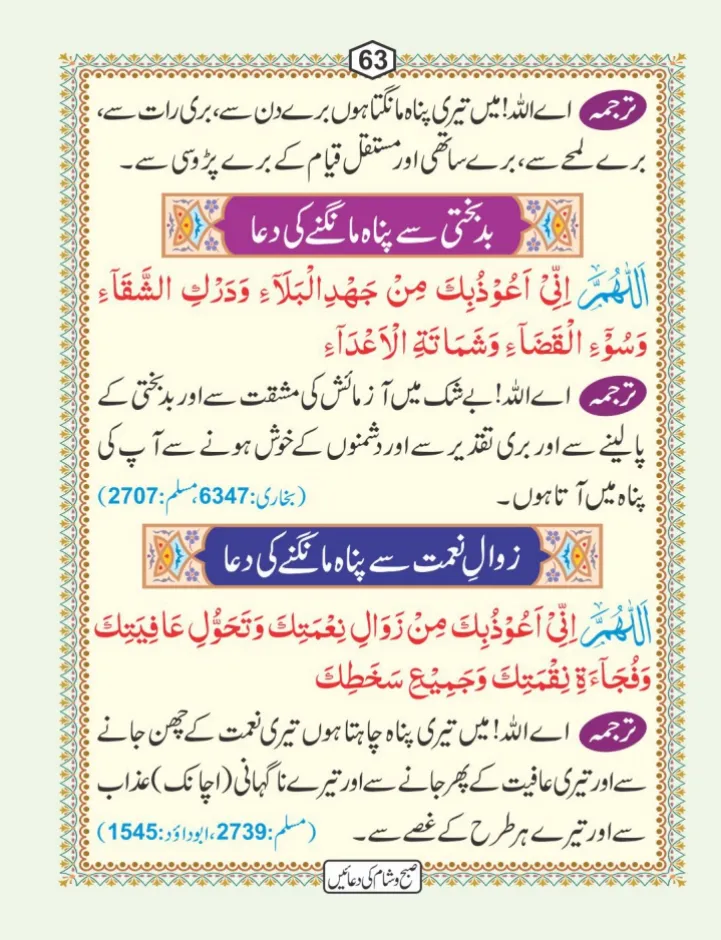 63
ترجمہ اے اللہ! میں تیری پناہ مانگتا ہوں برے دن سے، بری رات سے،
برے لمحے سے، برے ساتھی اور مستقل قیام کے برے پڑوسی سے۔
بدبختی سے پناہ مانگنے کی دعا
اَللّٰهُمَّ اِنِّیْ اَعُوْذُبِكَ مِنْ جَهْدِالْبَلَآءِ وَدَرْكِ الشَّقَآءِ
وَسُوْٓءِ الْقَضَآءِ وَشَمَاتَةِ الْاَعْدَآءِ
ترجمہ اے اللہ! بے شک میں آزمائش کی مشقت سے اور بدبختی کے
پالینے سے اور بری تقدیر سے اور دشمنوں کے خوش ہونے سے آپ کی
پناہ میں آتا ہوں۔ (بخاری:6347،مسلم:2707)
زوالِ نعمت سے پناہ مانگنے کی دعا
اَللّٰهُمَّ اِنِّیْ اَعُوْذُبِكَ مِنْ زَوَالِ نِعْمَتِكَ وَتَحَوُّلِ عَافِيَتِكَ
وَفُجَآءَةِ نِقْمَتِكَ وَجَمِيْعِ سَخَطِكَ
ترجمہ اے اللہ! میں تیری پناہ چاہتا ہوں تیری نعمت کے چھن جانے
سے اور تیری عافیت کے پھر جانے سے اور تیرے ناگہانی (اچانک) عذاب
سے اور تیرے ہر طرح کے غصے سے۔ (مسلم:2739،ابوداؤد:1545)
صبح و شام کی دعائیں